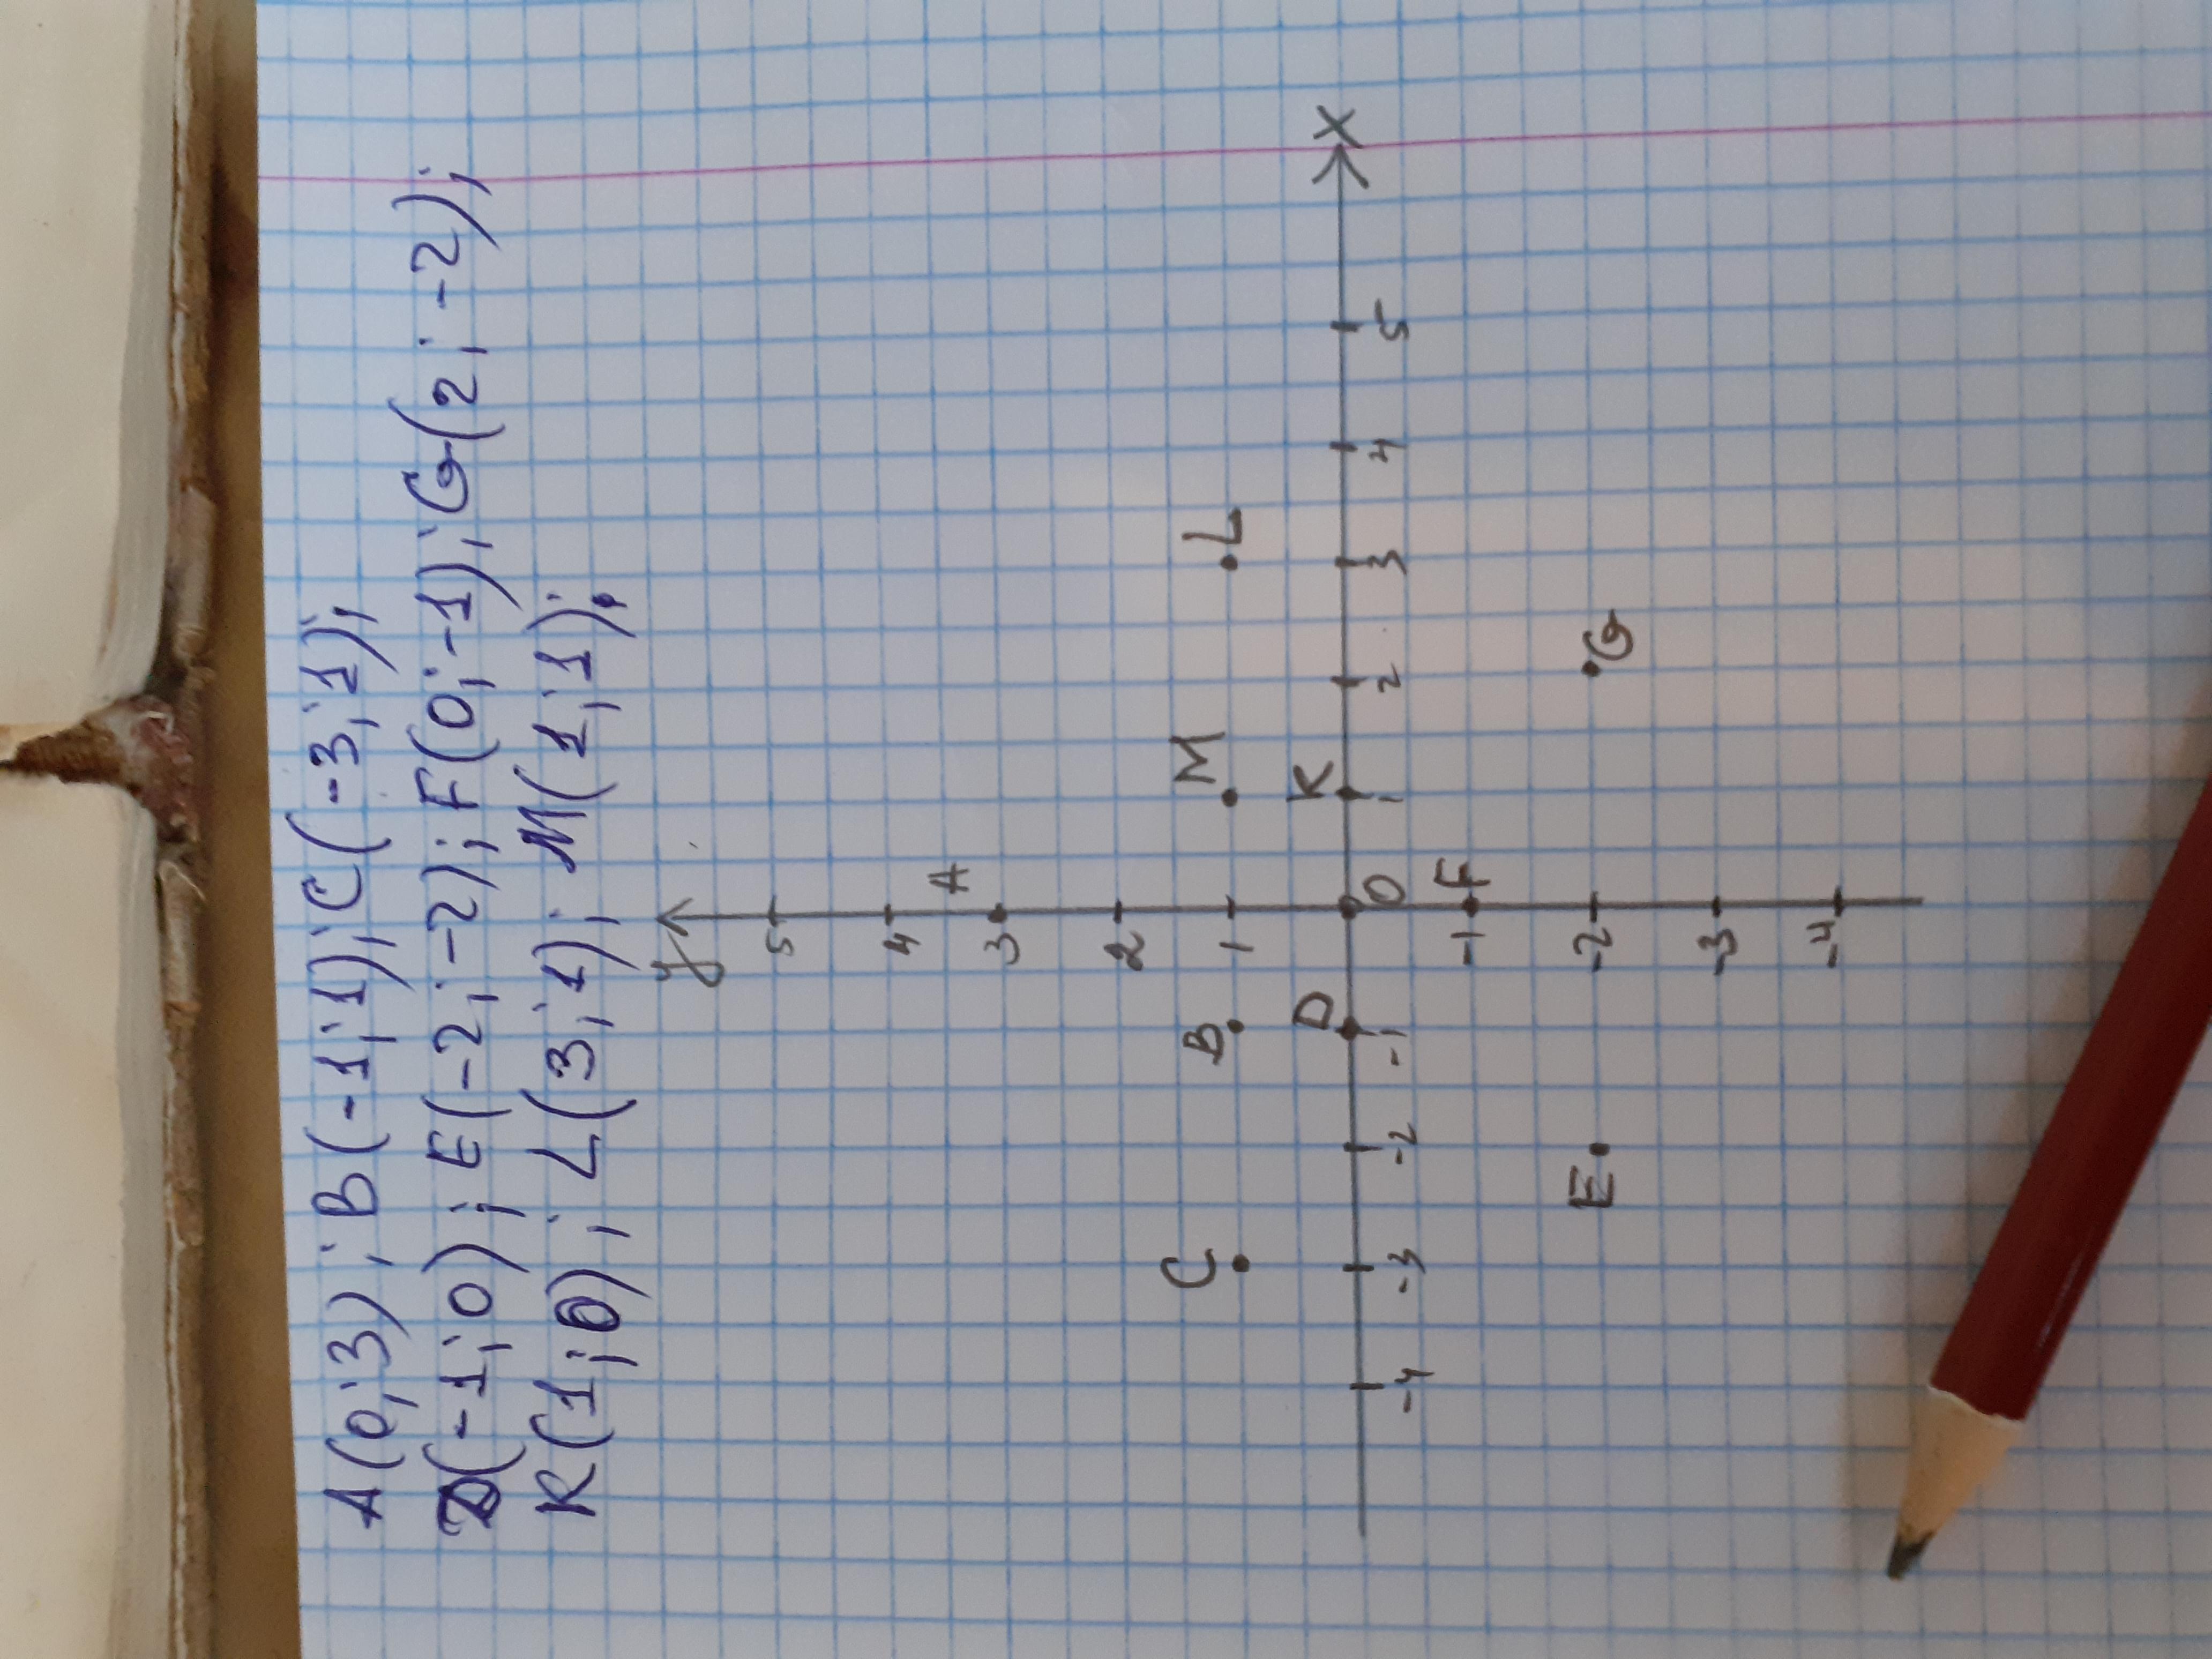 A(0;3); B(-1;1); C(-3;1);
D(-1;0); E(-2;-2); F(0;-1); G(2;-2);
K(1;0); L(3;1); M(1;1);
y
5
4
A
3
2
C B 1 M L
D K X
-4 -3 -2 -1 O 1 2 3 4 5
-1 F
E -2 G
-3
-4